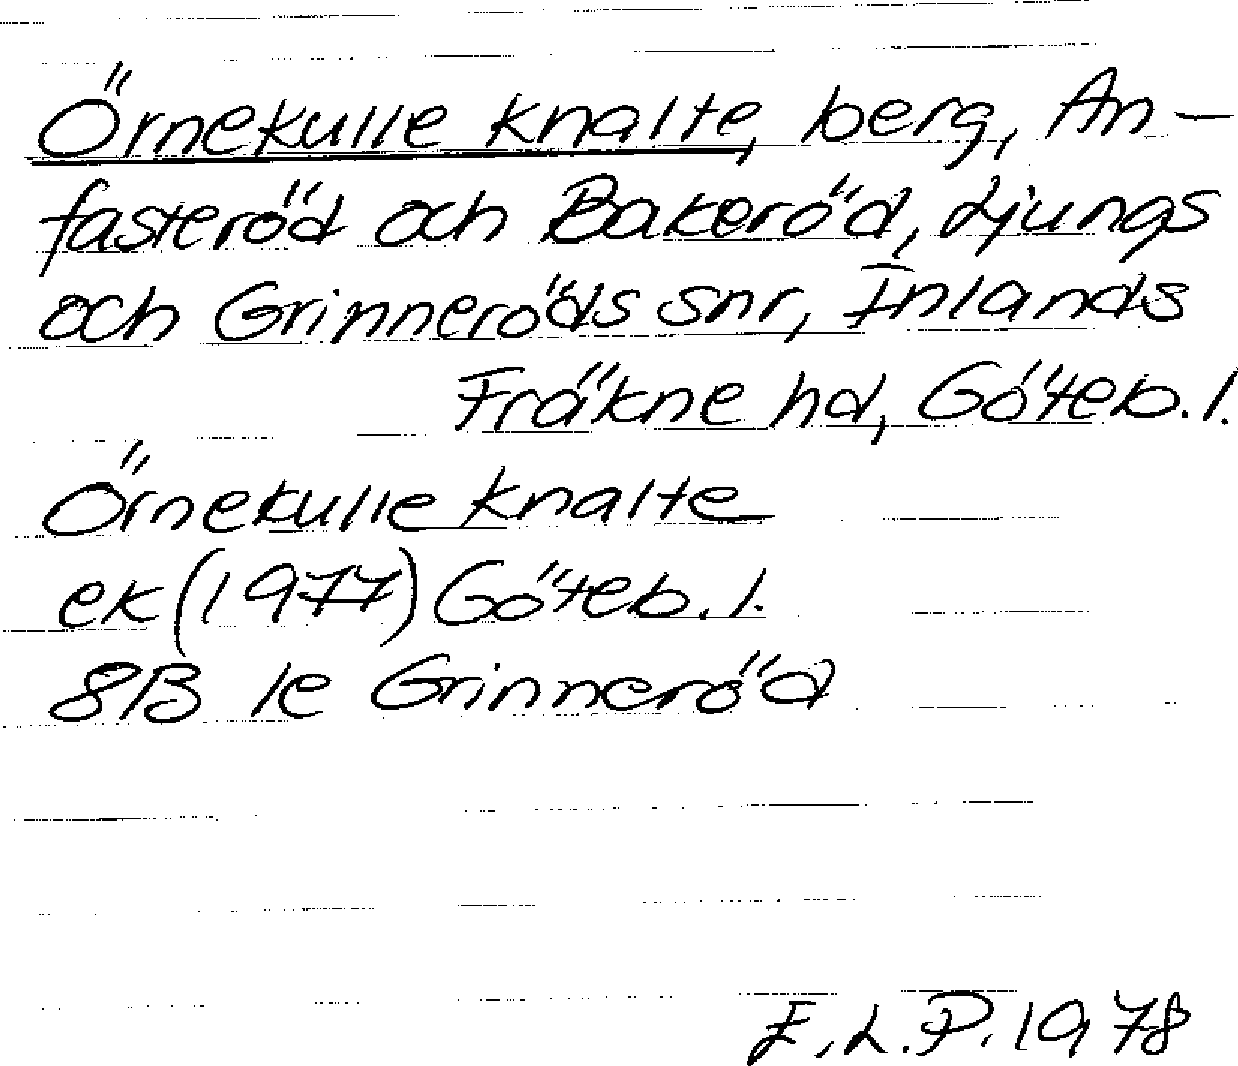 Örnekulle knalte, berg, An-
fasteröd och Bakeröd, Ljungs
och Grinneröds snr, Inlands
Fräkne hd, Göteb. l.
Örnekulle knalte
ek (1977) Göteb. l.
8B 1e Grinneröd
E. L. P. 1978